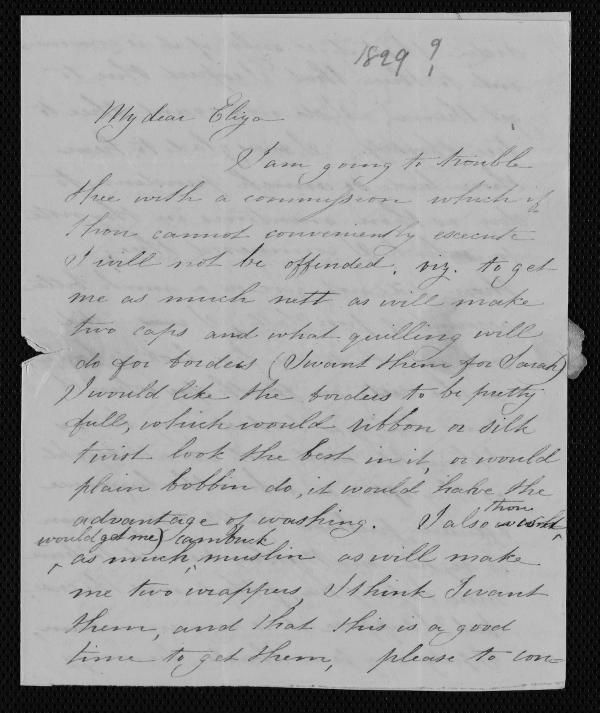 1829 ?
My dear Eliza
I am going to trouble
thee with a commission which if
thou cannot conveniently execute
I will not be offended, viz. to get
me as much nett as will make
two caps and what quilling will
do for borders (I want them for Sarah)
I would like the borders to be pretty
full, which would ribbon or silk
twist look the best in it, or would
plain bobbin do, it would have the
advantage of washing. I also wish
thou
would get me) cambrick
as much muslin as will make
me two wrappers, I think I want
them, and that this is a good
time to get them, please to con=